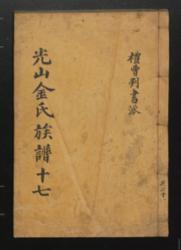 禮曹判書派
光山金氏族譜十七